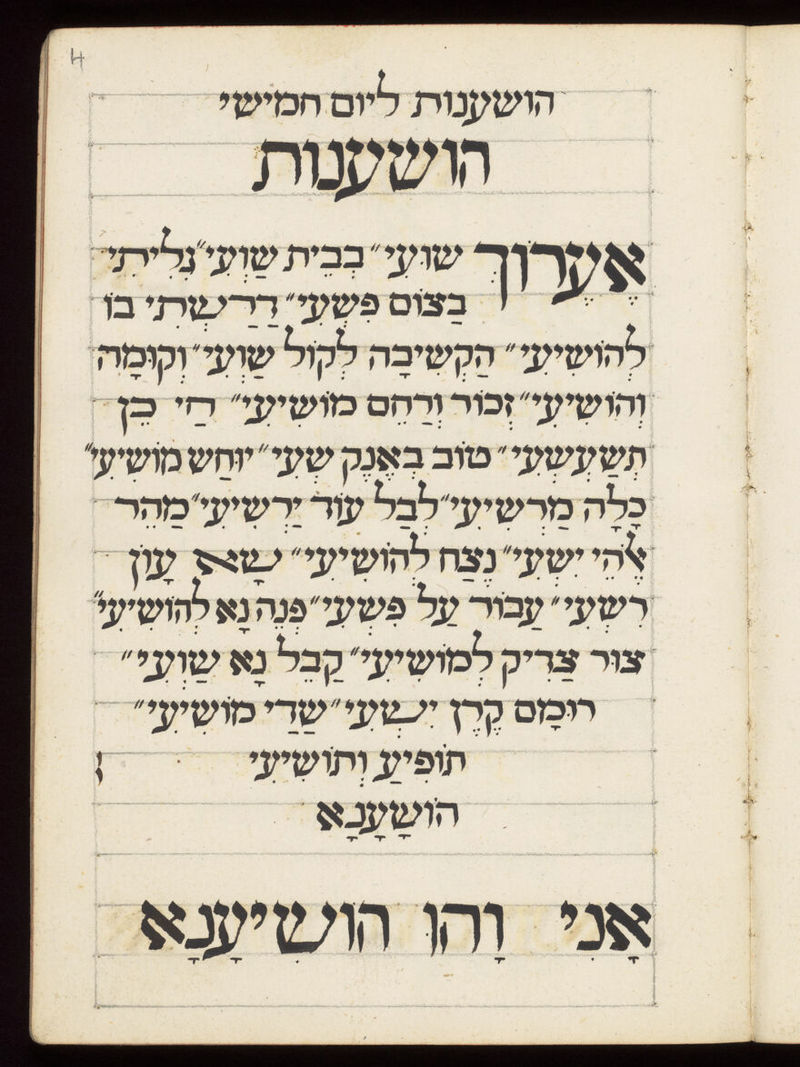 4
הושענות ליום חמישי
הושענות
אֶעֱרוֹךְ שׁוּעִי״ בְּבֵית שַׁוְעִי״ גִּלִּיתִי
בַצּוֹם פִּשְׁעִי״ דְּרַשְׁתִּי בוֹ
לְהוֹשִׁיעִי״ הַקְשִׁיבָה לְקוֹל שַׁוְעִי״ וְקוּמָה
וְהוֹשִׁיעִי״ זְכוֹר וְרַחֵם מוֹשִׁיעִי״ חַי כֵּן
תְּשַׁעְשְׁעִי״ טוֹב בְּאֶנֶק שְׁעִי״ יוּחַשׁ מוֹשִׁיעִי״
כַּלֵּה מַרְשִׁיעִי״ לְבַל עוֹד יַרְשִׁיעִי״ מַהֵר
אֱלֹהֵי יִשְׁעִי״ נֶצַח לְהוֹשִׁיעִי״ שָׂא עֲוֹן
רִשְׁעִי״ עֲבוֹר עַל פִּשְׁעִי״ פְּנֵה נָא לְהוֹשִׁיעִי״
צוּר צַדִּיק לְמוֹשִׁיעִי״ קַבֵּל נָא שַׁוְעִי״
רוֹמֵם קֶרֶן יִשְׁעִי״ שַׁדַּי מוֹשִׁיעִי״
תּוֹפִיעַ וְתוֹשִׁיעִי
הוֹשַׁעְנָא
אֲנִי וָהוּ הוֹשִׁיעָנָא